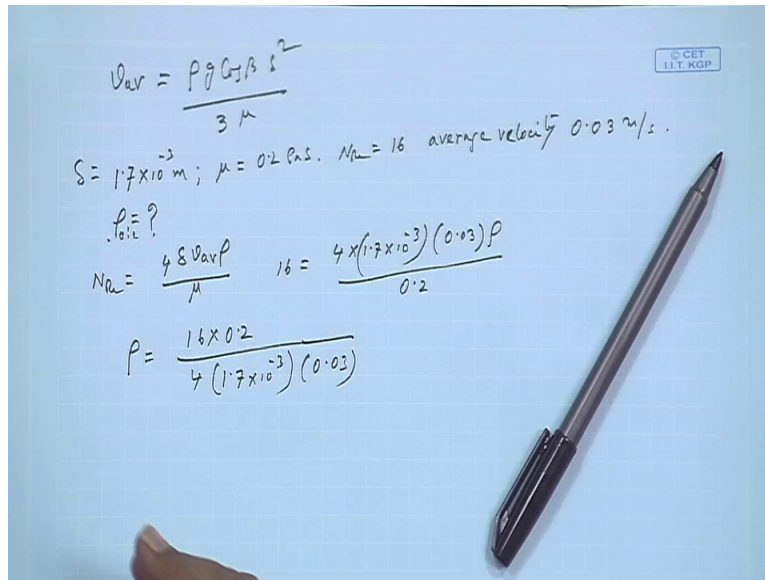 © CET
I.I.T. KGP
υav = ρ g Cosβ δ² / 3 μ
δ = 1.7×10⁻³ m ; μ = 0.2 Pa.s. NRe = 16 average velocity 0.03 m/s.
ρoil = ?
NRe = 4 δ υav ρ / μ 16 = 4×(1.7×10⁻³)(0.03) ρ / 0.2
ρ = 16×0.2 / 4(1.7×10⁻³)(0.03)